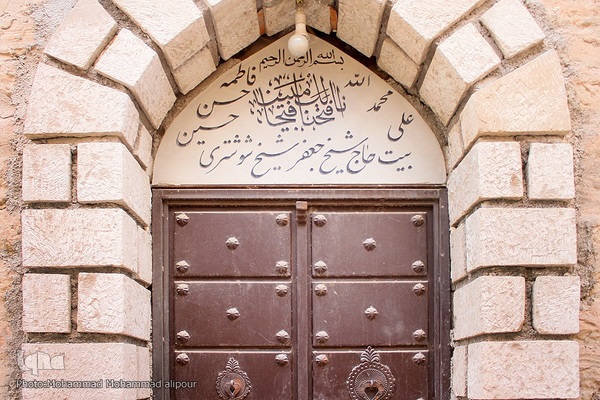 بسم الله الرحمن الرحیم
انا فتحنا لک فتحا مبینا
الله
محمد
علی
فاطمه
حسن
حسین
بیت حاج شیخ جعفر شیخ شوشتری
iqna
Photo:Mohammad Mohammad alipour